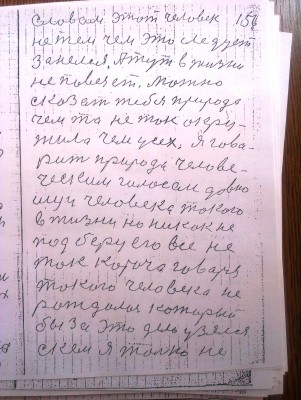 словам этот человек 15
не тем чем это следует
занелся, А тут в жизни
не повезет, можно
сказат тебя природа
чем та не ток окру-
жила чем усех, Я гова-
рит природа челове-
ческим голосам довно
ищу человека токого
в жизни но никак не
подберу его все не
ток корoча говаря
токого человека не
рождалос который
бы за это дело узялся
скем я толко не